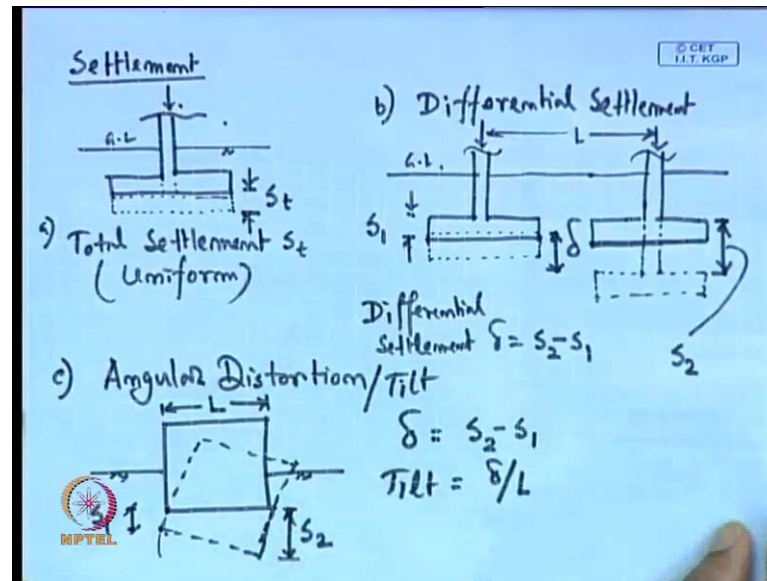 Settlement
© CET
I.I.T. KGP
G.L
St
a) Total Settlement St
(Uniform)
b) Differential Settlement
L
G.L.
S1
δ
Differential
Settlement δ = S2-S1
S2
c) Angular Distortion/Tilt
L
δ = S2-S1
Tilt = δ/L
S2
NPTEL